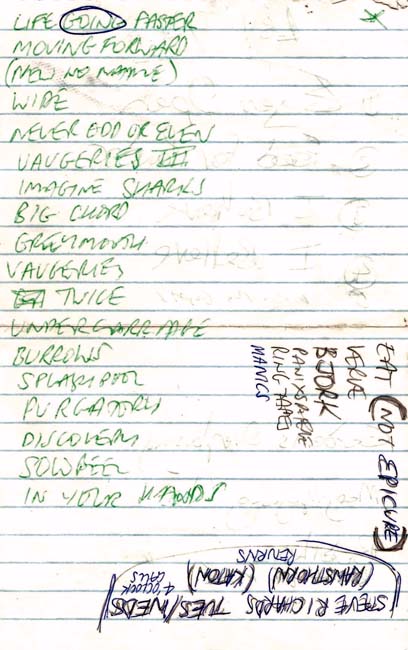 LIFE GOING FASTER
MOVING FORWARD
(NEW NO NAME)
WIRE
NEVER ODD OR EVEN
VAUGERIES III
IMAGINE SHARKS
BIG CHORD
GREYMOUTH
VAUGERIES
TWICE
UNDERCARRIAGE
BURROWS
SPLASHPOOL
PURGATORY
DISCOVERY
IN YOUR HANDS
EAT (NOT EPICURE)
VERVE
BJORK
RING
MANICS
STEVE RICHARDS TUES/WEDS
4 O'CLOCK
CALLS
(RAWSTHORN) (KATON)
RETURNS